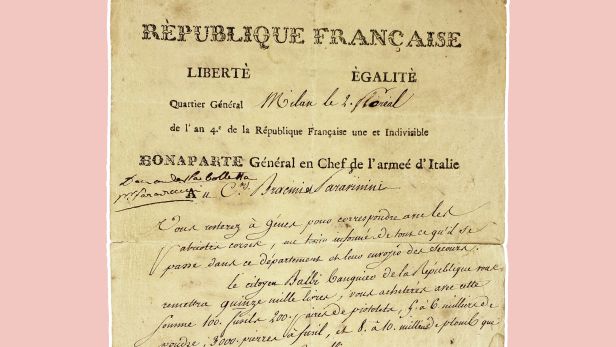 RÈPUBLIQUE FRANÇAISE
LIBERTÈ ÈGALITÈ
Quartier Général Milan le 2. floréal
de l'an 4.e de la République Française une et Indivisible
BONAPARTE Général en Chef de l'armeé d'Italie
Au C.ens
Vous resterez à Gènes pour correspondre avec les
patriotes corses, me tenir informé de tout ce qu'il se
passe dans ce département et leur envojez des secours.
le citoyen Balbi banquier de la République vous
remettra quinze mille livres, vous acheterez avec cette
somme 100. fusils 200. paires de pistolets, 5. à 6 milliers de
poudre, 3000 pierres à fusil, et 8. à 10. milliers de plomb que